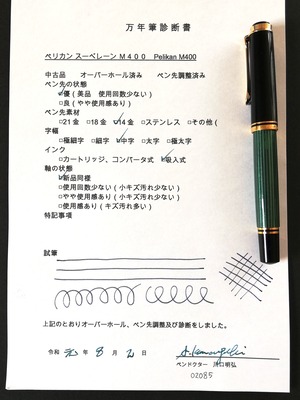 万年筆診断書
ペリカン スーベレーン M400　Pelikan M400
中古品　オーバーホール済み　ペン先調整済み
ペン先の状態
☑優(美品　使用回数少ない)
□良(やや使用感あり)
ペン先素材
□21金　□18金　☑14金　□ステンレス　□その他(
字幅
□極細字　□細字　☑中字　□太字　□極太字
インク
□カートリッジ、コンバータ式　☑吸入式
軸の状態
☑新品同様
□使用回数少ない(小キズ汚れ少ない)
□やや使用感あり(小キズ汚れ少ない)
□使用感あり(キズ汚れ多い)
特記事項
試筆
上記のとおりオーバーホール、ペン先調整及び診断をしました。
令和 元年 8月 2日
ペンドクター　川口明弘
02085